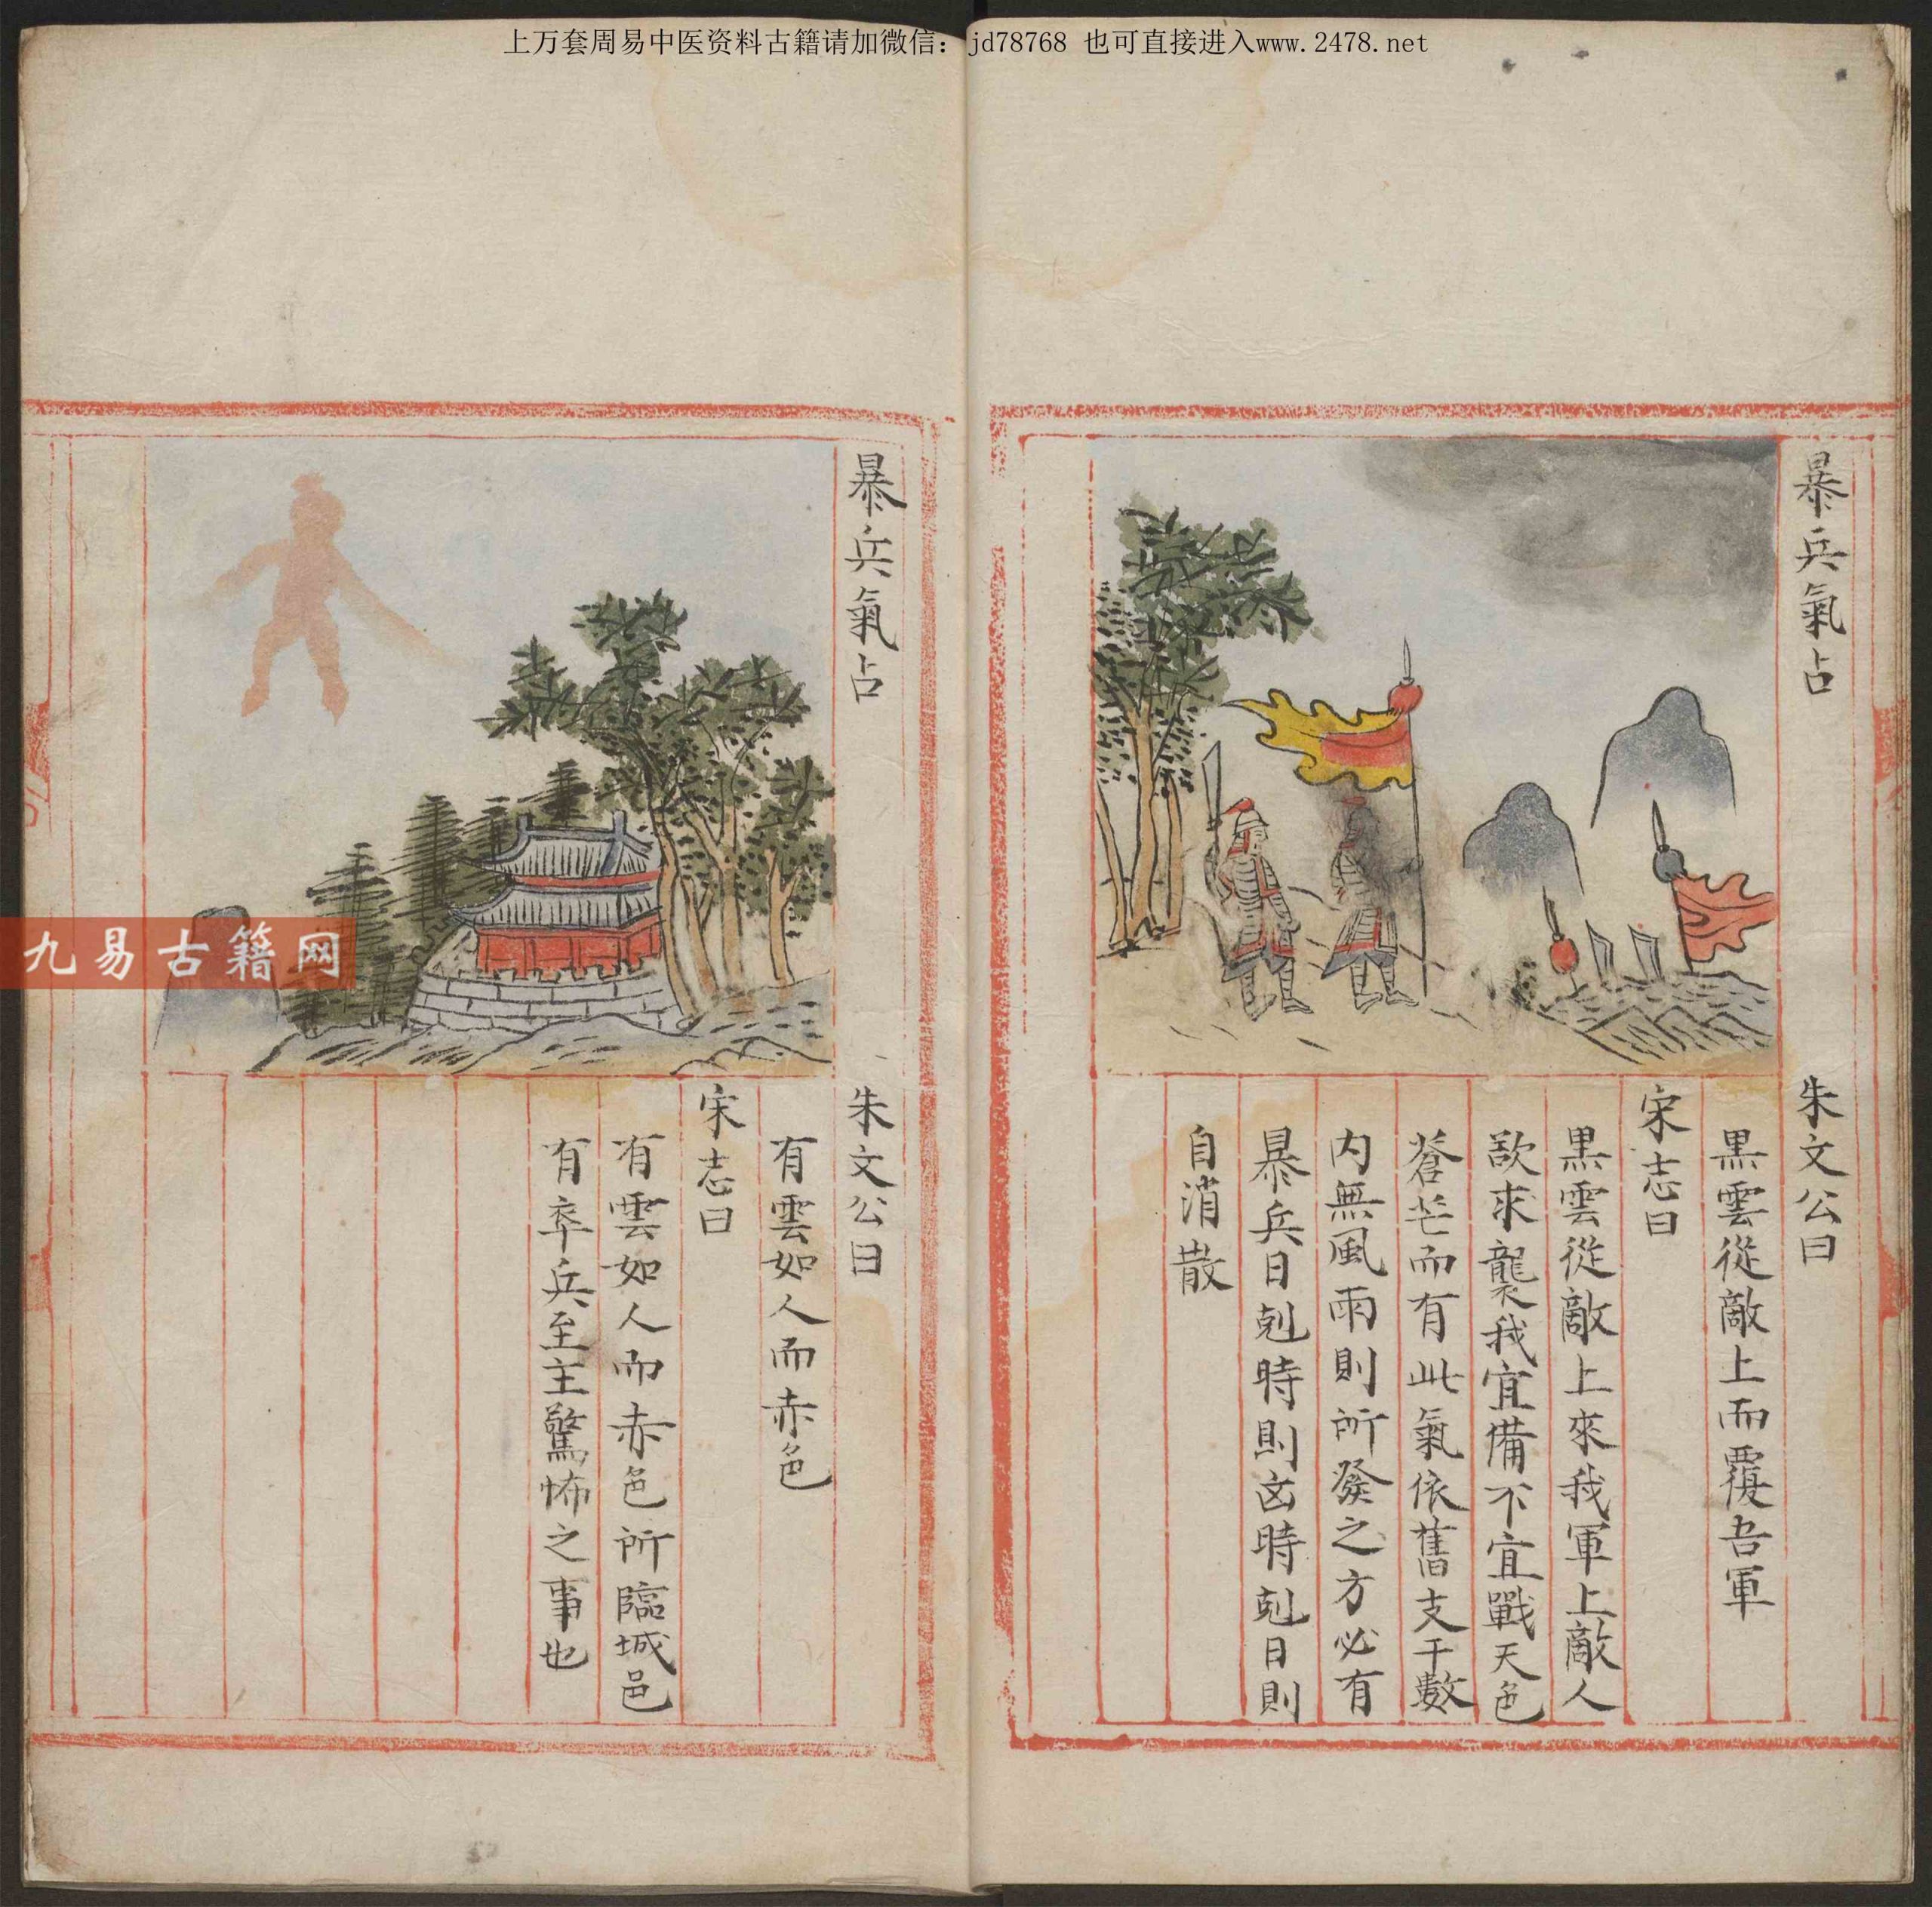 上万套周易中医资料古籍请加微信：jd78768 也可直接进入www.2478.net
暴兵氣占
朱文公曰
黒雲從敵上而覆吾軍
宋志曰
黒雲從敵上來我軍上敵人
欲求襲我宜備不宜戰天色
蒼茫而有此氣依舊支干數
内無風雨則所發之方必有
暴兵日剋時則凶時剋日則
自消散
暴兵氣占
朱文公曰
有雲如人而赤色
宋志曰
有雲如人而赤色所臨城邑
有卒兵至主驚怖之事也
九易古籍网